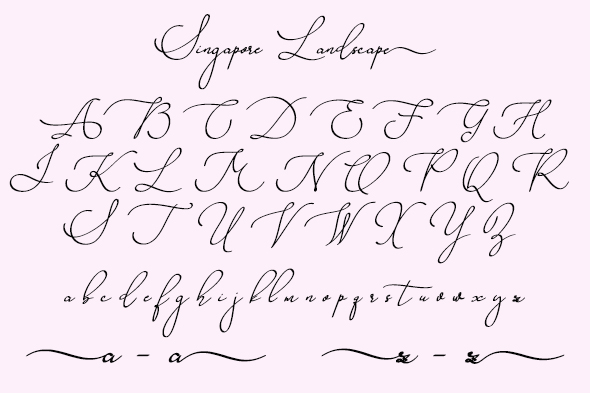 Singapore Landscape
A B C D E F G H
I K L M N O P Q R
S T U V W X Y Z
a b c d e f g h i j k l m n o p q r s t u v w x y z
a - a z - z